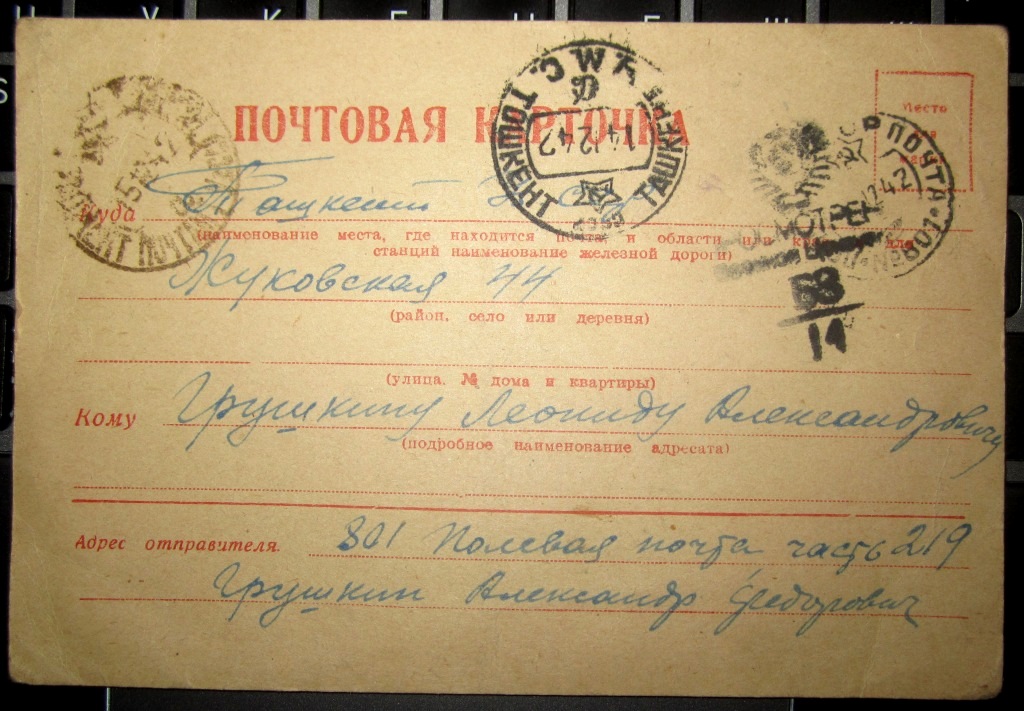 ПОЧТОВАЯ КАРТОЧКА
Место
для
марки
ТОШКЕНТ
ТАШКЕНТ
14 12 42
ПОЧТА № 801
ПРОСМОТРЕНО
53
14
Куда Ташкент
(наименование места, где находится почта, и области или края, а для
станций наименование железной дороги)
Жуковская 44
(район, село или деревня)
(улица, № дома и квартиры)
Кому Грушкину Леониду Александровичу
(подробное наименование адресата)
Адрес отправителя. 801 Полевая почта часть 219
Грушкин Александр Федорович